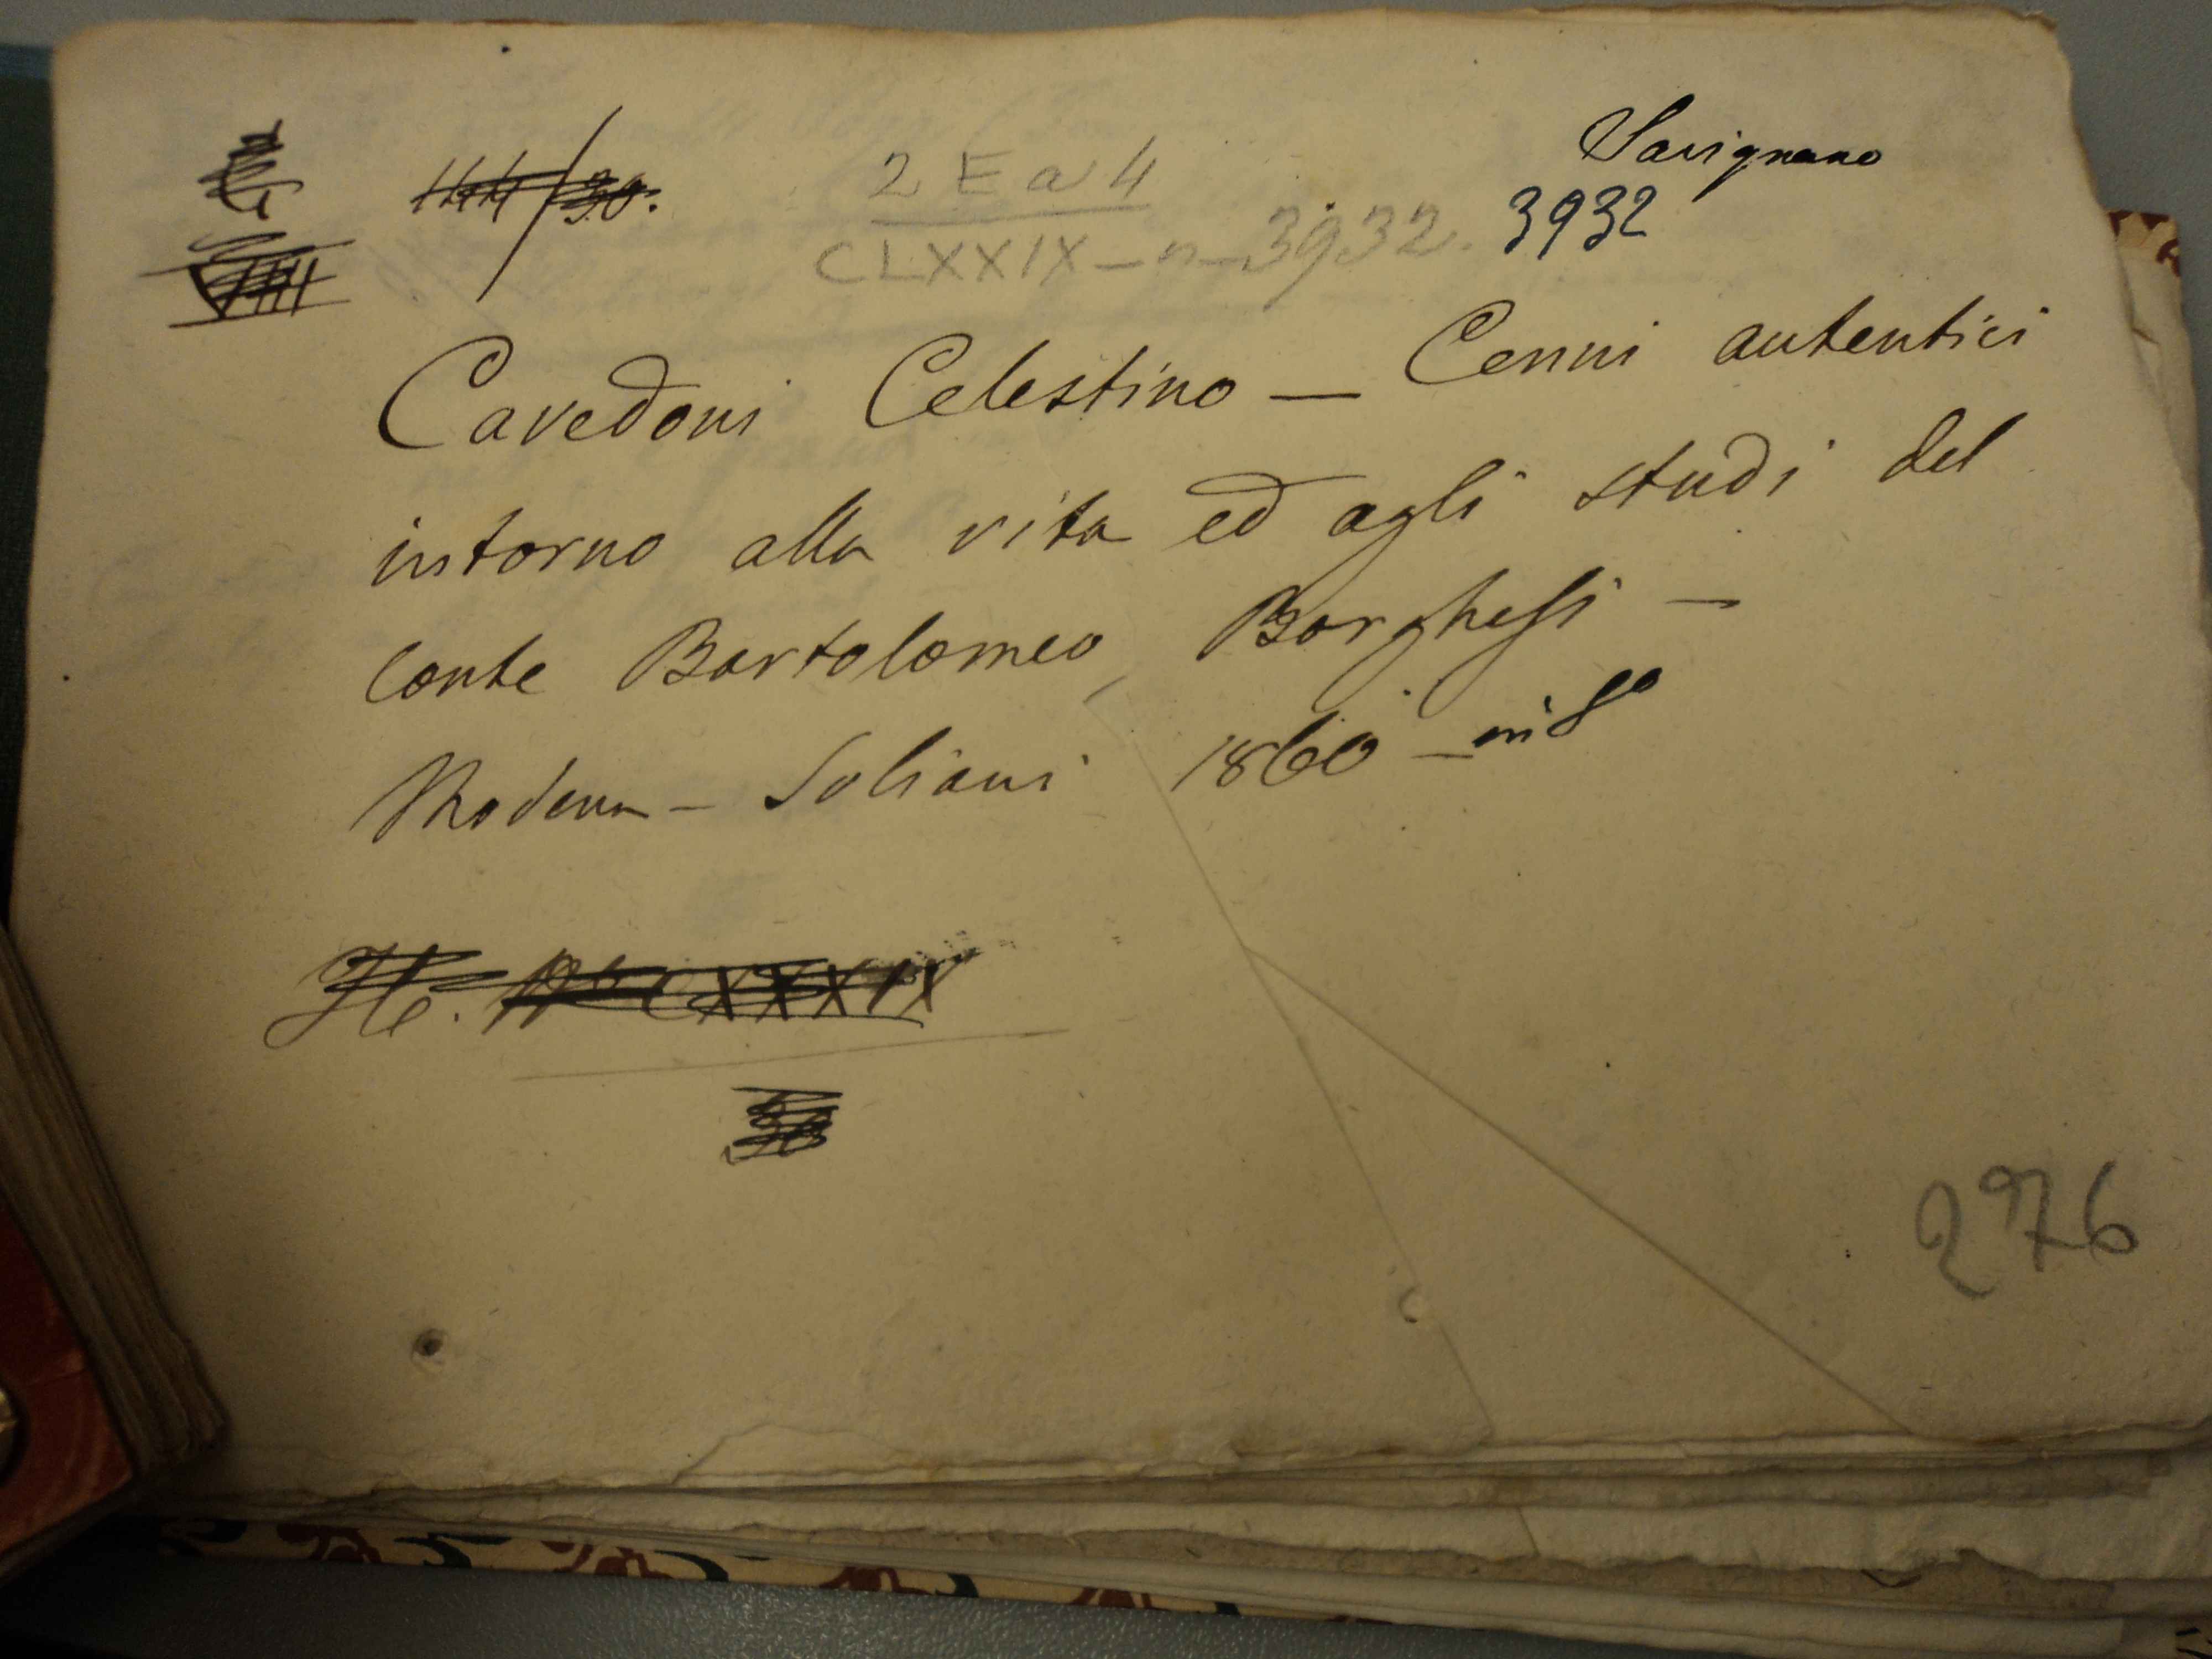 Savignano
144/30.
2 E a 4
CLXXIX - n - 3932. 3932
Cavedoni Celestino — Cenni autentici
intorno alla vita ed agli studi del
Conte Bartolomeo Borghesi —
Modena - Soliani 1860 - in 8º
CXXXIX
30
276